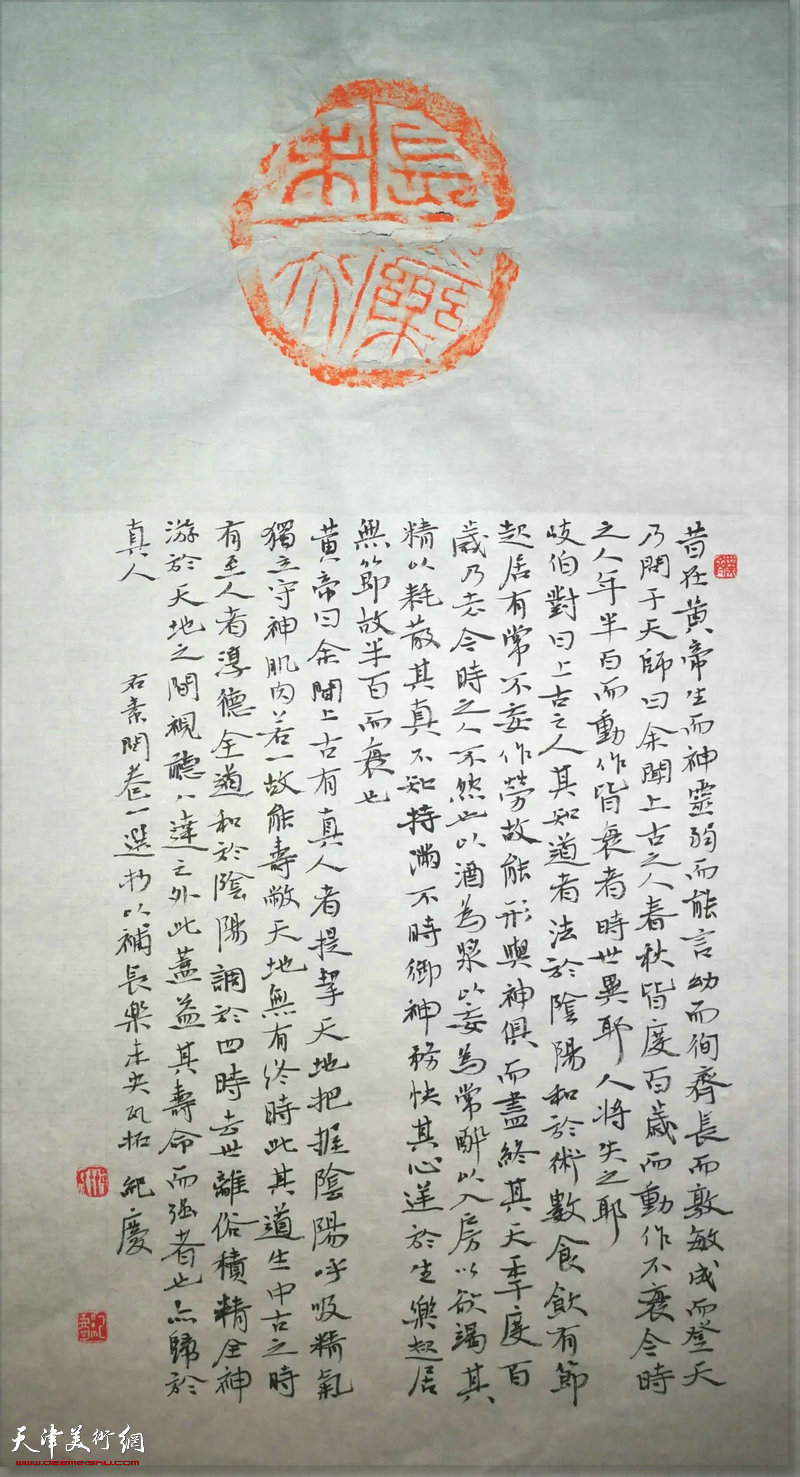 長樂未央
昔在黃帝生而神靈弱而能言幼而徇齊長而敦敏成而登天
乃問于天師曰余聞上古之人春秋皆度百歲而動作不衰今時
之人年半百而動作皆衰者時世異耶人將失之耶
岐伯對曰上古之人其知道者法於陰陽和於術數食飲有節
起居有常不妄作勞故能形與神俱而盡終其天年度百
歲乃去今時之人不然也以酒為漿以妄為常醉以入房以欲竭其
精以耗散其真不知持滿不時御神務快其心逆於生樂起居
無節故半百而衰也
黃帝曰余聞上古有真人者提挈天地把握陰陽呼吸精氣
獨立守神肌肉若一故能壽敝天地無有終時此其道生中古之時
有至人者淳德全道和於陰陽調於四時去世離俗積精全神
游於天地之間視聽八達之外此蓋益其壽命而强者也亦歸於
真人
右素問卷一選抄以補長樂未央瓦拓 紀慶
天津美術網
www.deemeishu.com